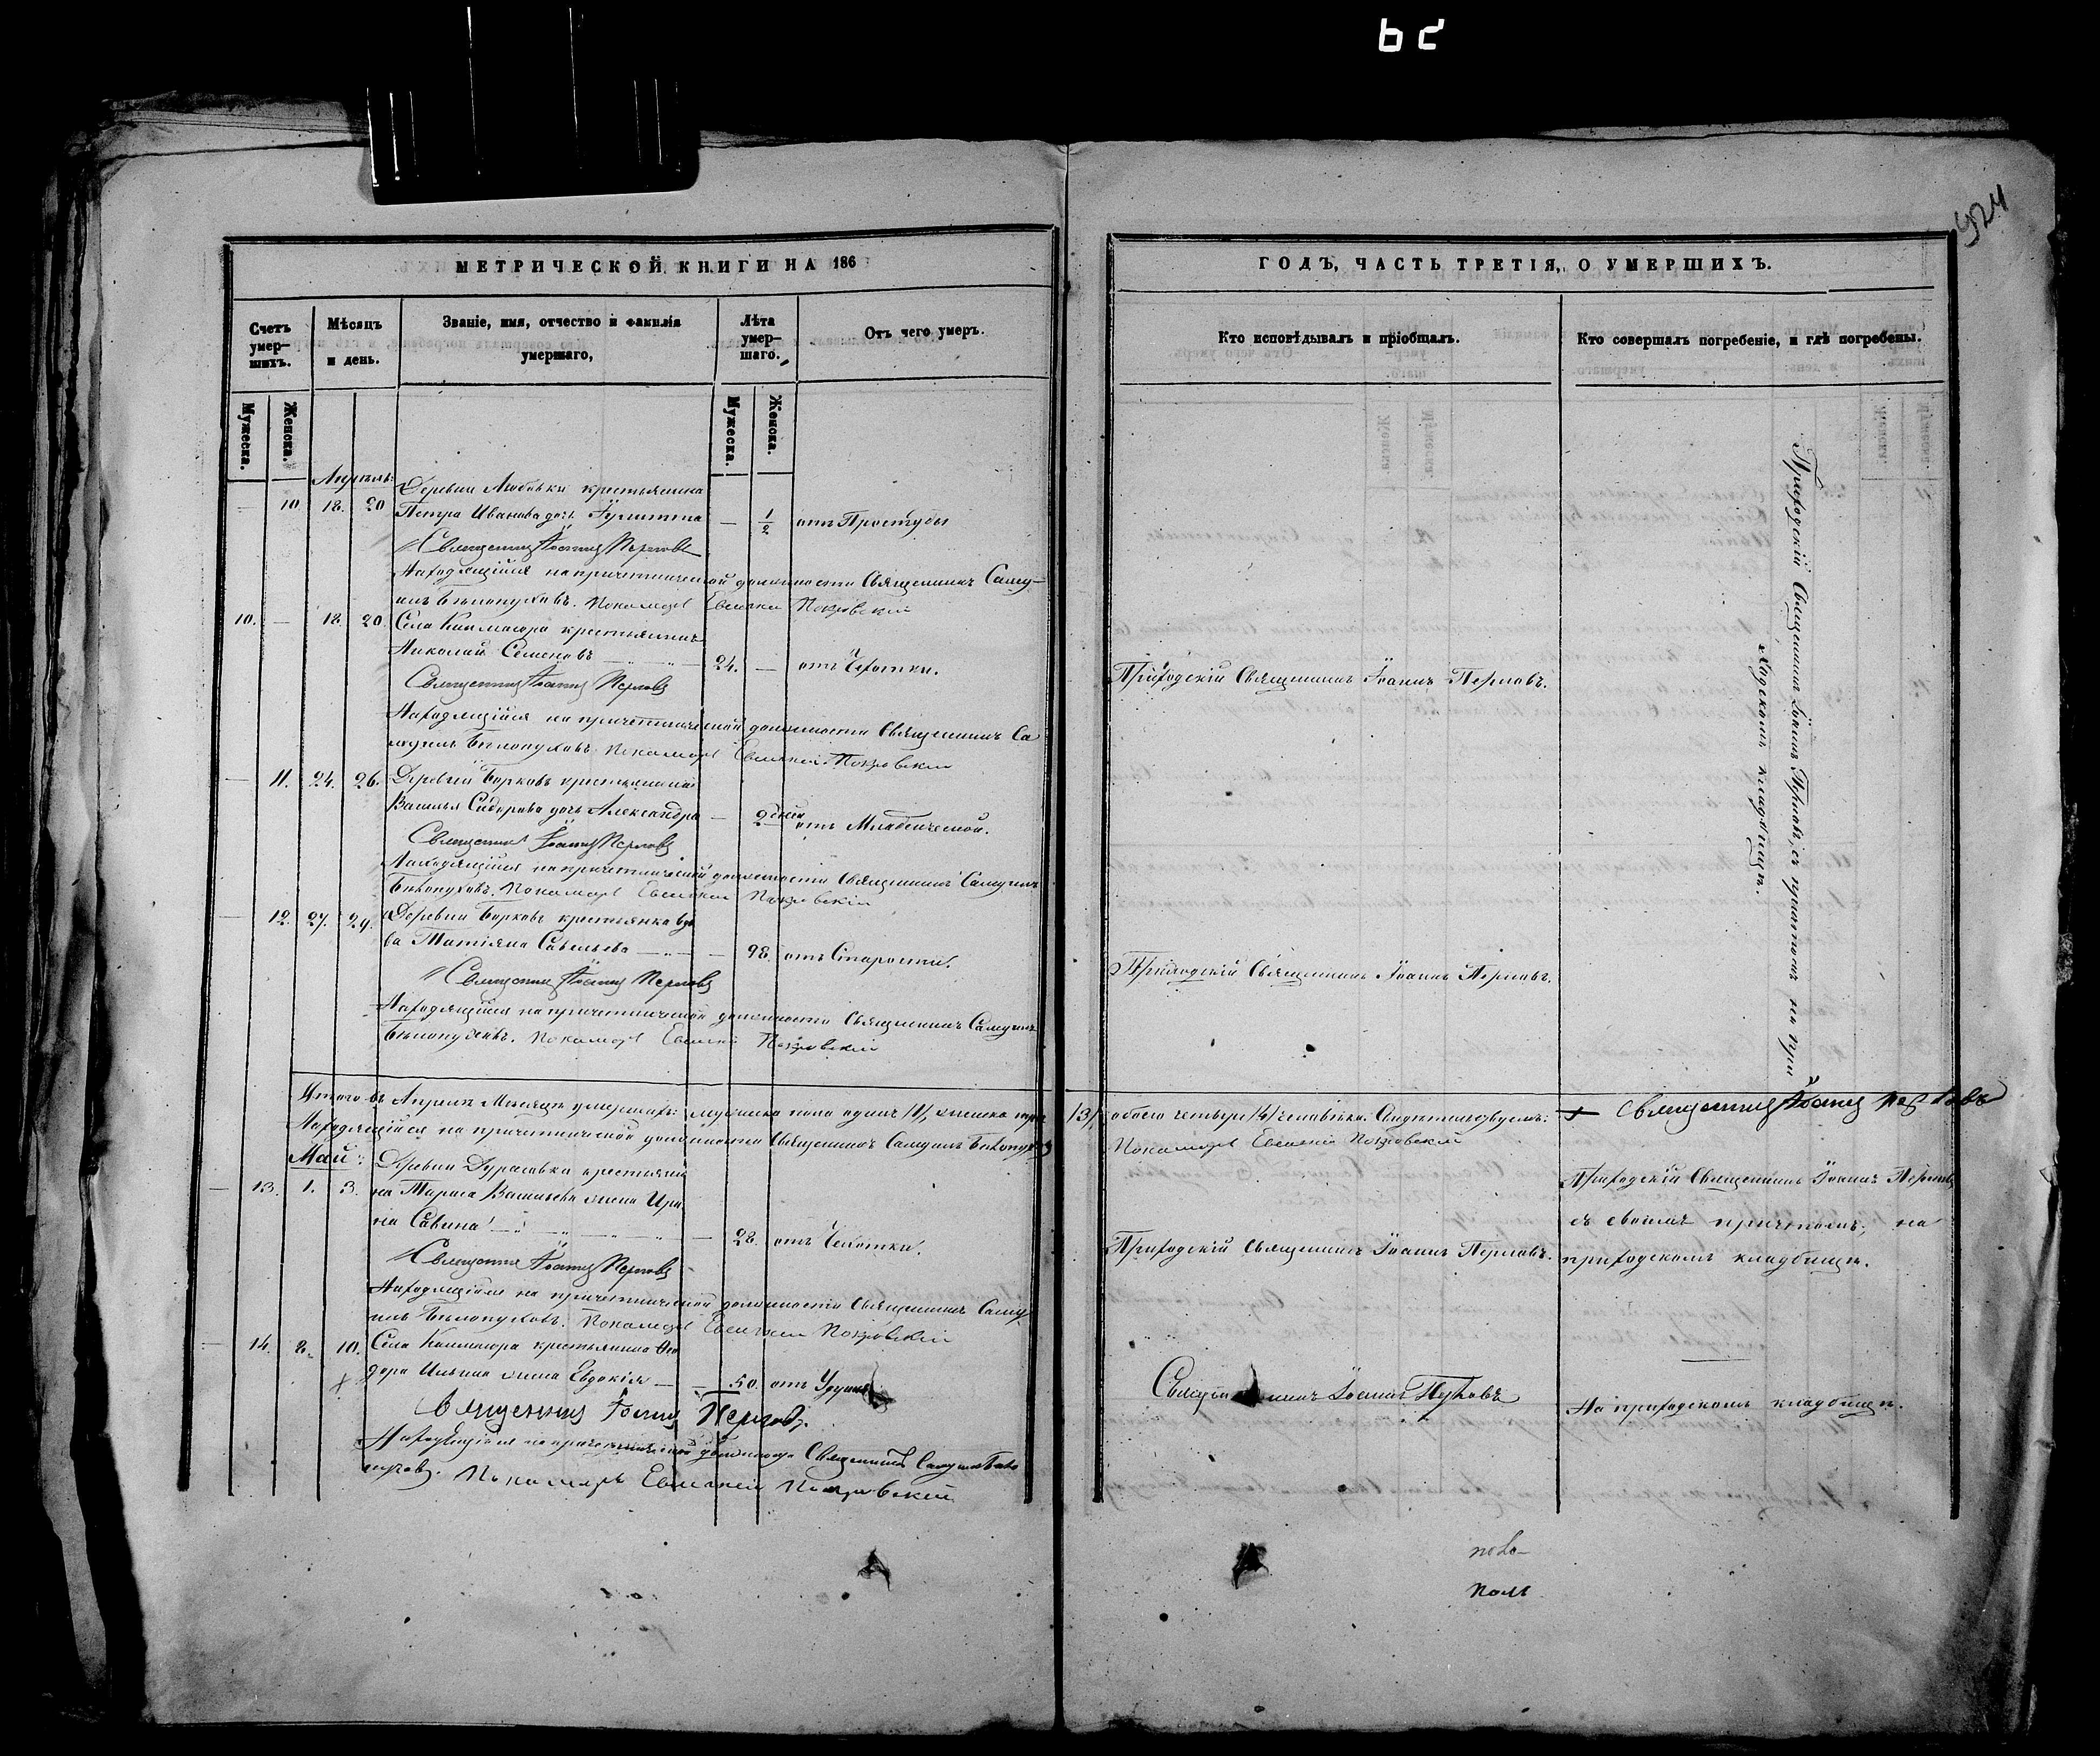 524
МЕТРИЧЕСКОЙ КНИГИ НА 186
Счетъ умер-шихъ.
Мѣсяцъ и день.
Званіе, имя, отчество и фамилія умершаго,
Лѣта умер-шаго.
Отъ чего умеръ.
Мужеска.
Женска.
Мужеска.
Женска.
Апрѣль
Деревни Любовки крестьянина
10 18. 20 Петра Иванова дочь Іулитта — 1/2 отъ Простуды
Священникъ Іоаннъ Перловъ
Находящійся на причетнической должности Священникъ Саму-
илъ Бѣлопуховъ. Пономарь Евсигній Покровскій
10. — 18. 20. Села крестьянинъ
Николай Семеновъ 24. — отъ Чахотки.
Священникъ Іоаннъ Перловъ
Находящійся на причетнической должности Священникъ Са
муилъ Бѣлопуховъ. Пономарь Евсигній Покровскій
— 11. 24. 26. Деревни Борковъ крестьянина
Василья Сидорова дочь Александра — 2 дней отъ Младенческой.
Священникъ Іоаннъ Перловъ
Находящійся на причетнической должности Священникъ Самуилъ
Бѣлопуховъ. Пономарь Евсигній Покровскій
— 12. 27. 29. Деревни Борковъ крестьянка вдо
ва Татіяна Савельева — 98. отъ Старости.
Священникъ Іоаннъ Перловъ
Находящійся на причетнической должности Священникъ Самуилъ
Бѣлопуховъ. Пономарь Евсигній Покровскій
Итого въ Апрѣлѣ Мѣсяцѣ умершихъ: мужеска пола одинъ /1/, женска три
Находящійся на причетнической должности Священникъ Самуилъ Бѣлопуховъ
Май:
Деревни Дурасовки крестьяни
— 13. 1. 3. на Тараса Васильева жена Ири
на Савина — 28. отъ Чахотки.
Священникъ Іоаннъ Перловъ
Находящійся на причетнической должности Священникъ Саму
илъ Бѣлопуховъ. Пономарь Евсигній Покровскій
— 14. 8. 10. Села крестьянина Ѳео
дора Ильина жена Евдокія — 50. отъ
Священникъ Іоаннъ Перловъ.
Находящійся на причетнической должности Священникъ Самуилъ Бѣло
пуховъ. Пономарь Евсигній Покровскій
ГОДЪ, ЧАСТЬ ТРЕТІЯ, О УМЕРШИХЪ.
Кто исповѣдывалъ и пріобщалъ.
Кто совершалъ погребеніе, и гдѣ погребены.
Приходскій Священникъ Іоаннъ Перловъ.
Приходскій Священникъ Іоаннъ Перловъ, съ причтомъ на при
ходскомъ кладбищѣ.
Приходскій Священникъ Іоаннъ Перловъ.
/3/ обоего четыре /4/ человѣка. Свидѣтельствуемъ: Священникъ Іоаннъ Перловъ
Пономарь Евсигній Покровскій
Приходскій Священникъ Іоаннъ Перловъ
съ своимъ причтомъ, на
Приходскій Священникъ Іоаннъ Перловъ.
приходскомъ кладбищѣ.
Священникъ Іоаннъ
На приходскомъ кладбищѣ.